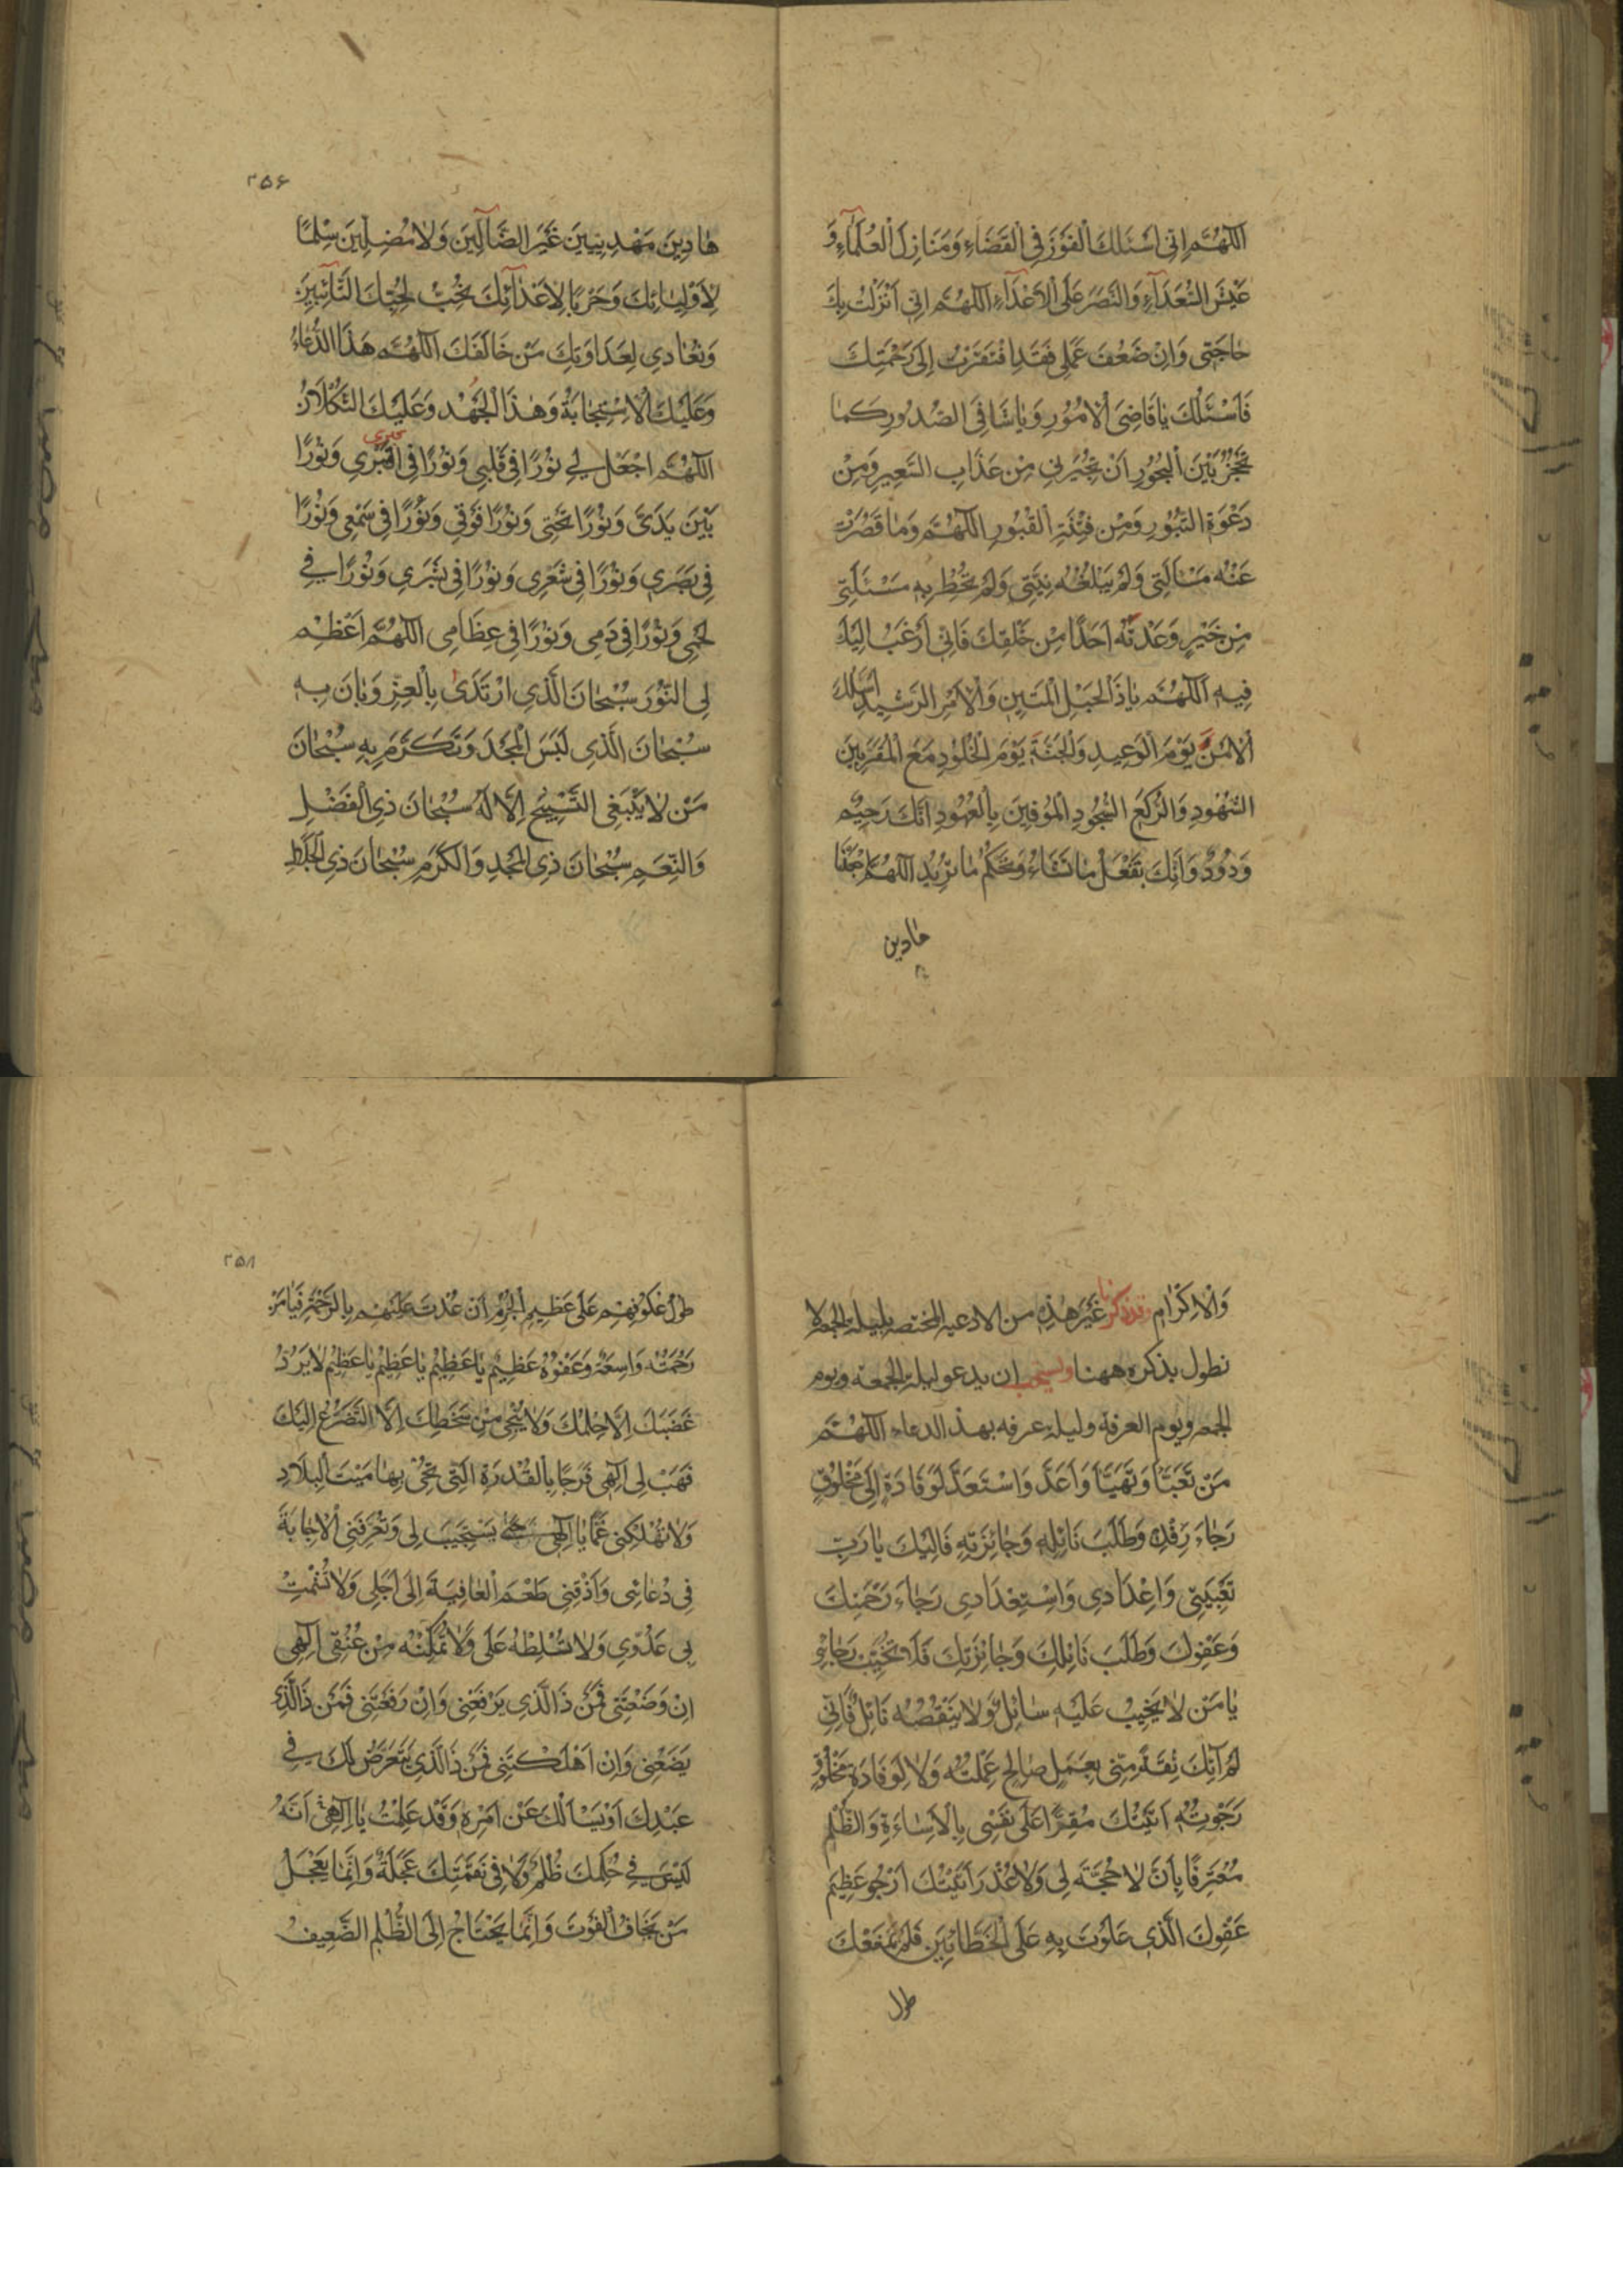 اَللّٰهُمَّ اِنّى اَسْئَلُكَ الْفَوْزَ فِى الْقَضَاءِ وَمَنَازِلَ الْعُلَمٰآءِ وَ
عَيْشَ السُّعَدَآءِ وَالنَّصْرَ عَلَى الْاَعْدَآءِ اَللّٰهُمَّ اِنّى اَنْزَلْتُ بِكَ
حٰاجَتى وَاِنْ ضَعُفَ عَمَلى فَقَدِ افْتَقَرْتُ اِلىٰ رَحْمَتِكَ
فَاَسْئَلُكَ يٰا قٰاضِىَ الْاُمُورِ وَيٰا شٰافِىَ الصُّدُورِ كَمٰا
تُجَيْزُ بَيْنَ الْبُحُورِ اَنْ تُجيرَنى مِنْ عَذٰابِ السَّعيرِ وَمِنْ
دَعْوَةِ الثُّبُورِ وَمِنْ فِتْنَةِ الْقُبُورِ اَللّٰهُمَّ وَمٰا قَصُرَتْ
عَنْهُ مَسْاَلَتى وَلَمْ يَبْلُغْهُ نِيَّتى وَلَمْ تُحِطْ بِهِ مَسْئَلَتى
مِنْ خَيْرٍ وَعَدْتَهُ اَحَدًا مِنْ خَلْقِكَ فَاِنّى اَرْغَبُ اِلَيْكَ
فيهِ اَللّٰهُمَّ يٰا ذَا الْحَبْلِ الْمَتينِ وَالْاَمْرِ الرَّشيدِ اَسْئَلُكَ
الْاَمْنَ يَوْمَ الْوَعيدِ وَالْجَنَّةَ يَوْمَ الْخُلُودِ مَعَ الْمُقَرَّبينَ
الشُّهُودِ وَالرُّكَّعِ السُّجُودِ الْمُوفينَ بِالْعُهُودِ اِنَّكَ رَحيمٌ
وَدُودٌ وَاِنَّكَ تَفْعَلُ مٰا تَشٰاءُ وَتَحْكُمُ مٰا تُريدُ اَللّٰهُمَّ اجْعَلْنٰا
هادين
۲۵۶
هٰادينَ مَهْدِيّينَ غَيْرَ الضّٰآلّينَ وَلٰا مُضِلّينَ سِلْمًا
لِاَوْلِيٰائِكَ وَحَرْبًا لِاَعْدٰآئِكَ نُحِبُّ لِحُبِّكَ التّٰآئِبينَ
وَنُعٰادى لِعَدٰاوَتِكَ مَنْ خٰالَفَكَ اَللّٰهُمَّ هٰذَا الدُّعٰاءُ
وَعَلَيْكَ الْاِسْتِجٰابَةُ وَهٰذَا الْجُهْدُ وَعَلَيْكَ التُّكْلٰانُ
اَللّٰهُمَّ اجْعَلْ لى نُورًا فى قَلْبى وَنُورًا فى قَبْرى وَنُورًا
بَيْنَ يَدَىَّ وَنُورًا تَحْتى وَنُورًا فَوْقى وَنُورًا فى سَمْعى وَنُورًا
فى بَصَرى وَنُورًا فى شَعْرى وَنُورًا فى بَشَرى وَنُورًا فى
لَحْمى وَنُورًا فى دَمى وَنُورًا فى عِظٰامى اَللّٰهُمَّ اَعْظِمْ
لِى النُّورَ سُبْحٰانَ الَّذِى ارْتَدىٰ بِالْعِزِّ وَبٰانَ بِهِ
سُبْحٰانَ الَّذى لَبِسَ الْمَجْدَ وَتَكَرَّمَ بِهِ سُبْحٰانَ
مَنْ لٰا يَنْبَغِى التَّسْبيحُ اِلّٰا لَهُ سُبْحٰانَ ذِى الْفَضْلِ
وَالنِّعَمِ سُبْحٰانَ ذِى الْمَجْدِ وَالْكَرَمِ سُبْحٰانَ ذِى الْجَلٰالِ
وَالْاِكْرٰامِ قد ذكرنا غَيْرَ هٰذِهِ من الادعيه المختصه بليلة الجمعه لا
نطول بذكره ههنا ويستحب ان يدعو ليلة الجمعه ويوم
الجمعه ويوم العرفة وليلة عرفه بهذ الدعاء اَللّٰهُمَّ
مَنْ تَعَبَّاَ وَتَهَيَّاَ وَاَعَدَّ وَاسْتَعَدَّ لِوِفٰادَةٍ اِلىٰ مَخْلُوقٍ
رَجٰاءَ رِفْدِهِ وَطَلَبَ نٰائِلِهِ وَجٰائِزَتِهِ فَاِلَيْكَ يٰا رَبِّ
تَعْبِيَتى وَاِعْدٰادى وَاسْتِعْدٰادى رَجٰاءَ رَحْمَتِكَ
وَعَفْوِكَ وَطَلَبَ نٰائِلِكَ وَجٰائِزَتِكَ فَلٰا تُخَيِّبْ رَجٰائى
يٰا مَنْ لٰا يَخيبُ عَلَيْهِ سٰائِلٌ وَلٰا يَنْقُصُهُ نٰائِلٌ فَاِنّى
لَمْ آتِكَ ثِقَةً مِنّى بِعَمَلٍ صٰالِحٍ عَمِلْتُهُ وَلٰا لِوِفٰادَةِ مَخْلُوقٍ
رَجَوْتُهُ اَتَيْتُكَ مُقِرًّا عَلىٰ نَفْسى بِالْاِسٰاءَةِ وَالظُّلْمِ
مُعْتَرِفًا بِاَنْ لٰا حُجَّةَ لى وَلٰا عُذْرَ اَتَيْتُكَ اَرْجُو عَظيمَ
عَفْوِكَ الَّذى عَلَوْتَ بِهِ عَلَى الْخَطّٰائينَ فَلَمْ يَمْنَعْكَ
طول
۲۵۸
طُولُ عُكُوفِهِمْ عَلىٰ عَظيمِ الْجُرْمِ اَنْ عُدْتَ عَلَيْهِمْ بِالرَّحْمَةِ فَيٰا مَنْ
رَحْمَتُهُ وٰاسِعَةٌ وَعَفْوُهُ عَظيمٌ يٰا عَظيمُ يٰا عَظيمُ يٰا عَظيمُ لٰا يَرُدُّ
غَضَبَكَ اِلّٰا حِلْمُكَ وَلٰا يُنْجى مِنْ سَخَطِكَ اِلَّا التَّضَرُّعُ اِلَيْكَ
فَهَبْ لى اِلٰهى فَرَجًا بِالْقُدْرَةِ الَّتى تُحْيى بِهٰا مَيْتَ الْبِلٰادِ
وَلٰا تُهْلِكْنى غَمًّا يٰا اِلٰهى حَتّىٰ تَسْتَجيبَ لى وَتُعَرِّفَنِى الْاِجٰابَةَ
فى دُعٰائى وَاَذِقْنى طَعْمَ الْعٰافِيَةَ اِلىٰ اَجَلى وَلٰا تُشْمِتْ
بى عَدُوّى وَلٰا تُسَلِّطْهُ عَلَىَّ وَلٰا تُمَكِّنْهُ مِنْ عُنُقى اِلٰهى
اِنْ وَضَعْتَنى فَمَنْ ذَا الَّذى يَرْفَعُنى وَاِنْ رَفَعْتَنى فَمَنْ ذَا الَّذى
يَضَعُنى وَاِنْ اَهْلَكْتَنى فَمَنْ ذَا الَّذى يَتَعَرَّضُ لَكَ فى
عَبْدِكَ اَوْ يَسْاَلُكَ عَنْ اَمْرِهِ وَقَدْ عَلِمْتُ يٰا اِلٰهى اَنَّهُ
لَيْسَ فى حُكْمِكَ ظُلْمٌ وَلٰا فى نَقِمَتِكَ عَجَلَةٌ وَاِنَّمٰا يَعْجَلُ
مَنْ يَخٰافُ الْفَوْتَ وَاِنَّمٰا يَحْتٰاجُ اِلَى الظُّلْمِ الضَّعيفُ